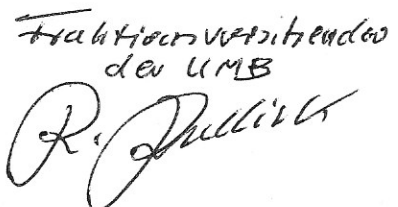 Fraktionsvorsitzender
der UMB
R.